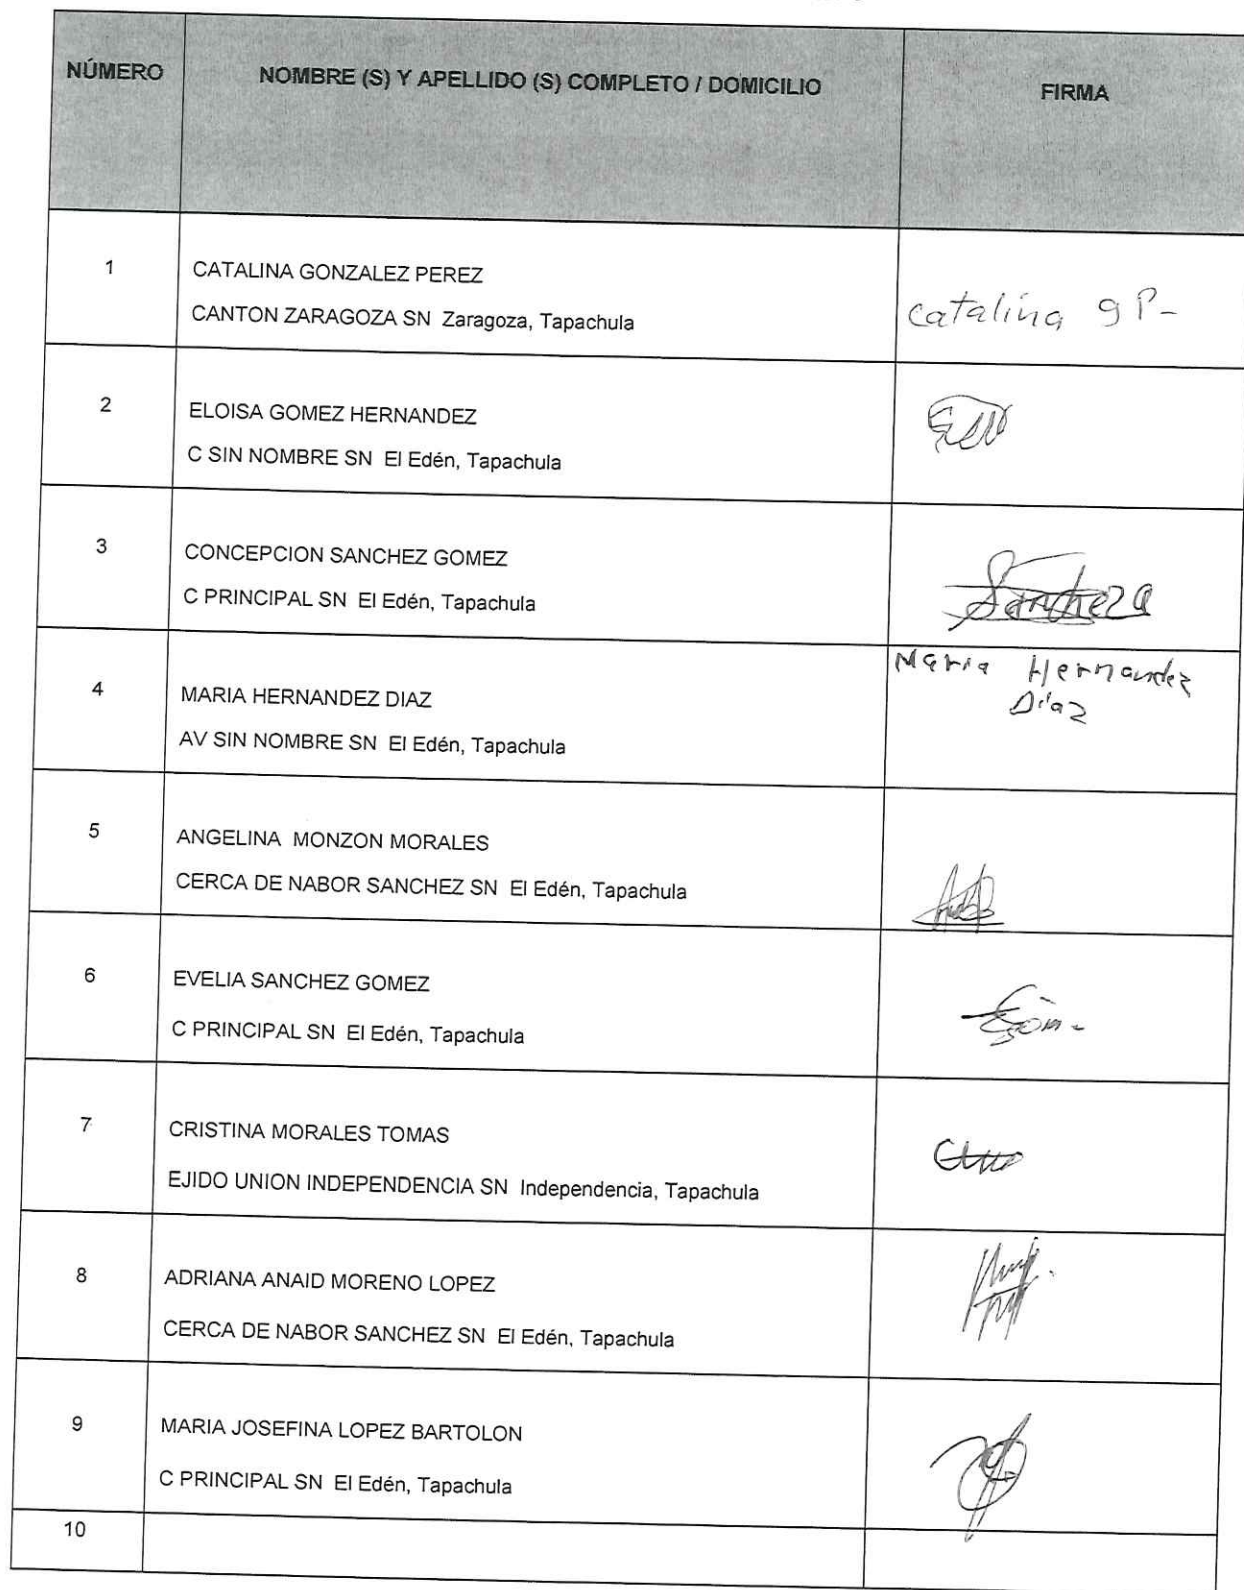 NÚMERO
NOMBRE (S) Y APELLIDO (S) COMPLETO / DOMICILIO
FIRMA
1
CATALINA GONZALEZ PEREZ
CANTON ZARAGOZA SN Zaragoza, Tapachula
catalina g P-
2
ELOISA GOMEZ HERNANDEZ
C SIN NOMBRE SN El Edén, Tapachula
3
CONCEPCION SANCHEZ GOMEZ
C PRINCIPAL SN El Edén, Tapachula
4
MARIA HERNANDEZ DIAZ
AV SIN NOMBRE SN El Edén, Tapachula
Maria Hernandez
Diaz
5
ANGELINA MONZON MORALES
CERCA DE NABOR SANCHEZ SN El Edén, Tapachula
6
EVELIA SANCHEZ GOMEZ
C PRINCIPAL SN El Edén, Tapachula
7
CRISTINA MORALES TOMAS
EJIDO UNION INDEPENDENCIA SN Independencia, Tapachula
8
ADRIANA ANAID MORENO LOPEZ
CERCA DE NABOR SANCHEZ SN El Edén, Tapachula
9
MARIA JOSEFINA LOPEZ BARTOLON
C PRINCIPAL SN El Edén, Tapachula
10